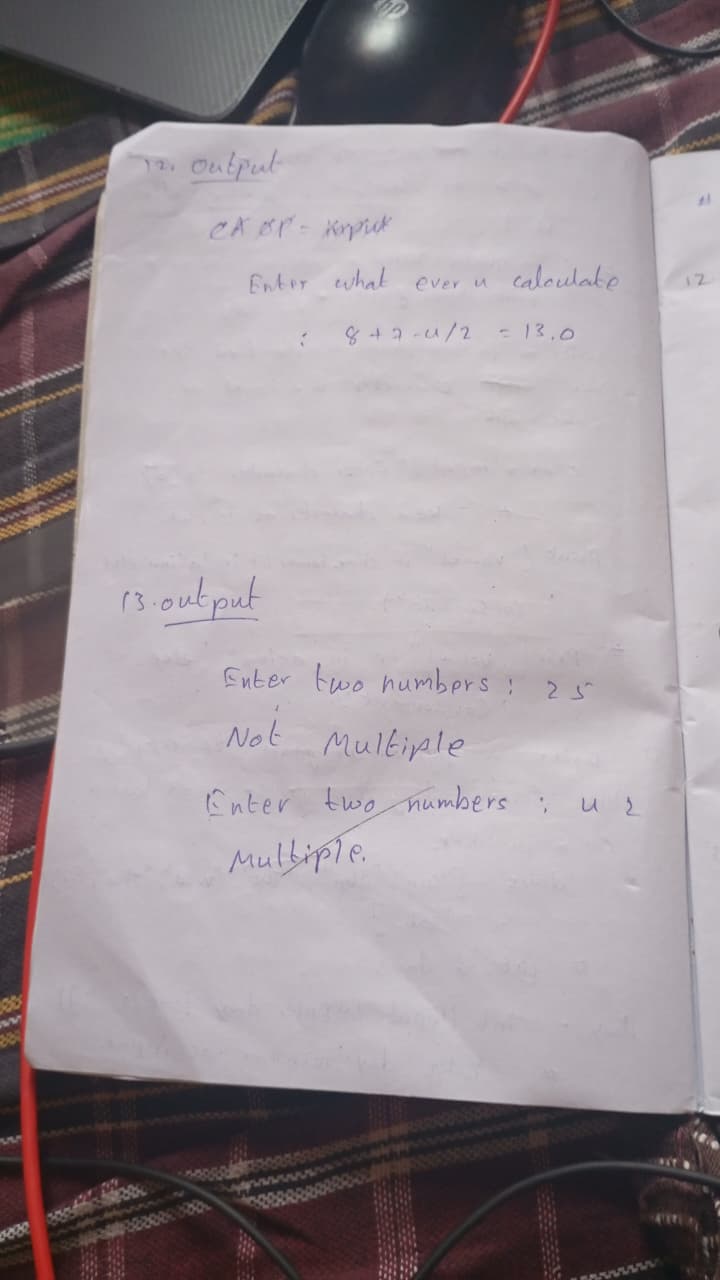 12. output
Enter what ever u caloulate
: 8+7-4/2 = 13.0
13. output
Enter two numbers : 2 5
Not Multiple
Enter two numbers : 4 2
Multiple.
12
hp